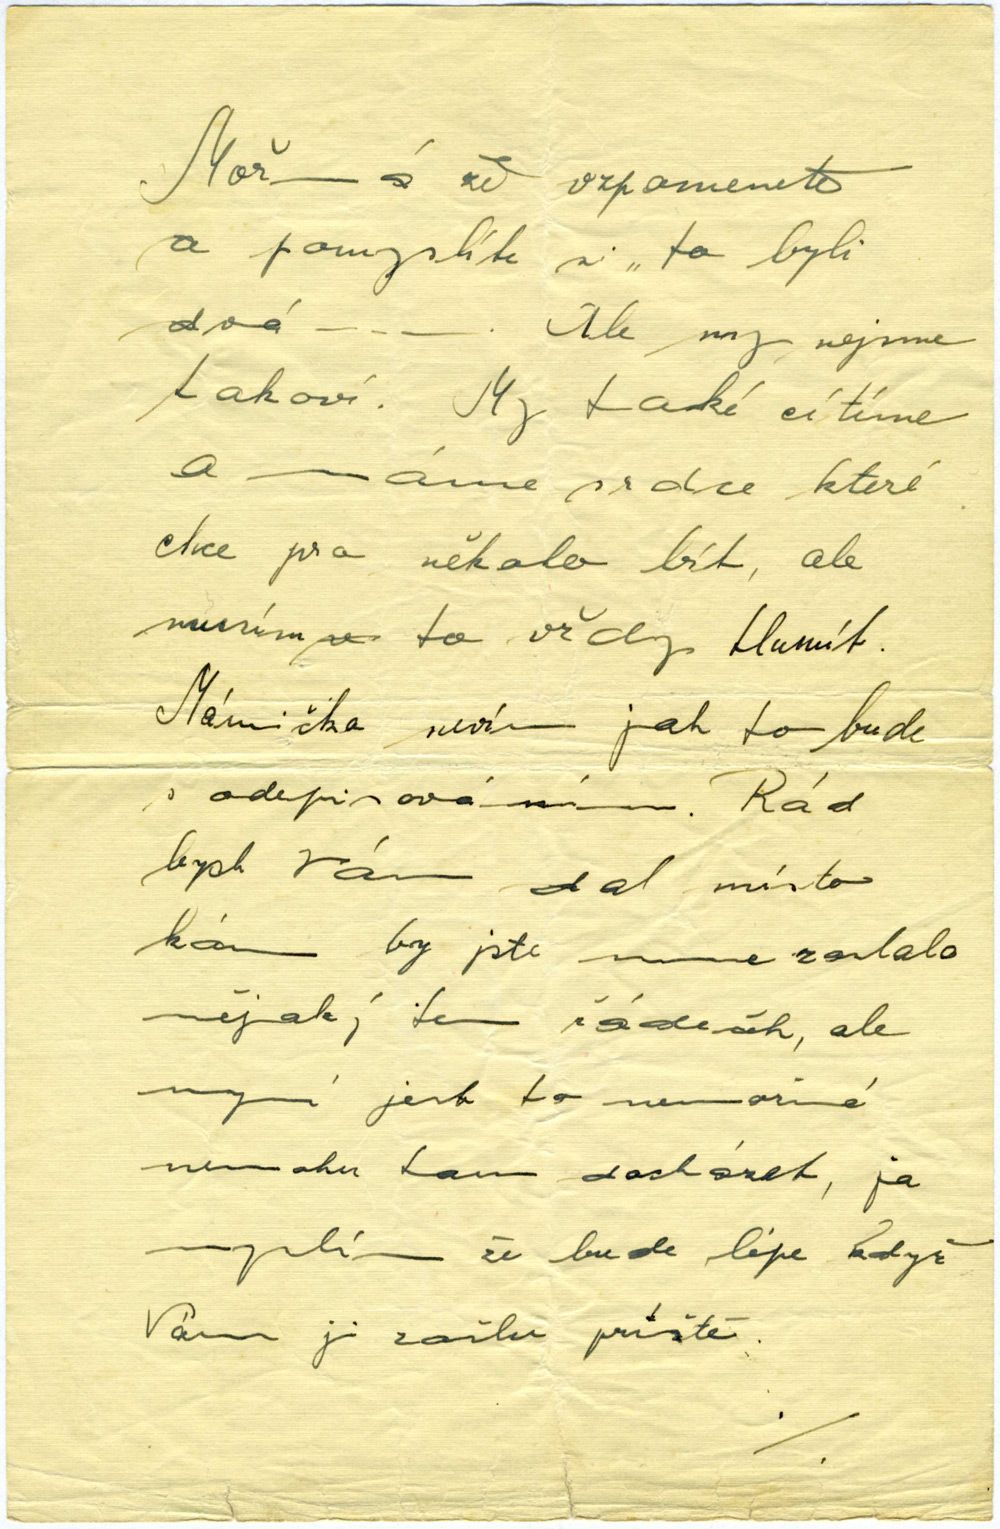 Možná že vzpomenete
a pomyslíte si „to byli
dvá ---. Ale my nejsme
takoví. My také cítíme
a máme srdce které
chce pro někoho bít, ale
musíme to vždy tlumit.
Mámička nevím jak to bude
s odepisováním. Rád
bych Vám dal místo
kam by jste mne zaslala
nějaký ten řádeček, ale
nyní jest to nemožné
nemohu tam docházet, ja
myslím že bude lépe když
Vám ji zašlu príště.
./.